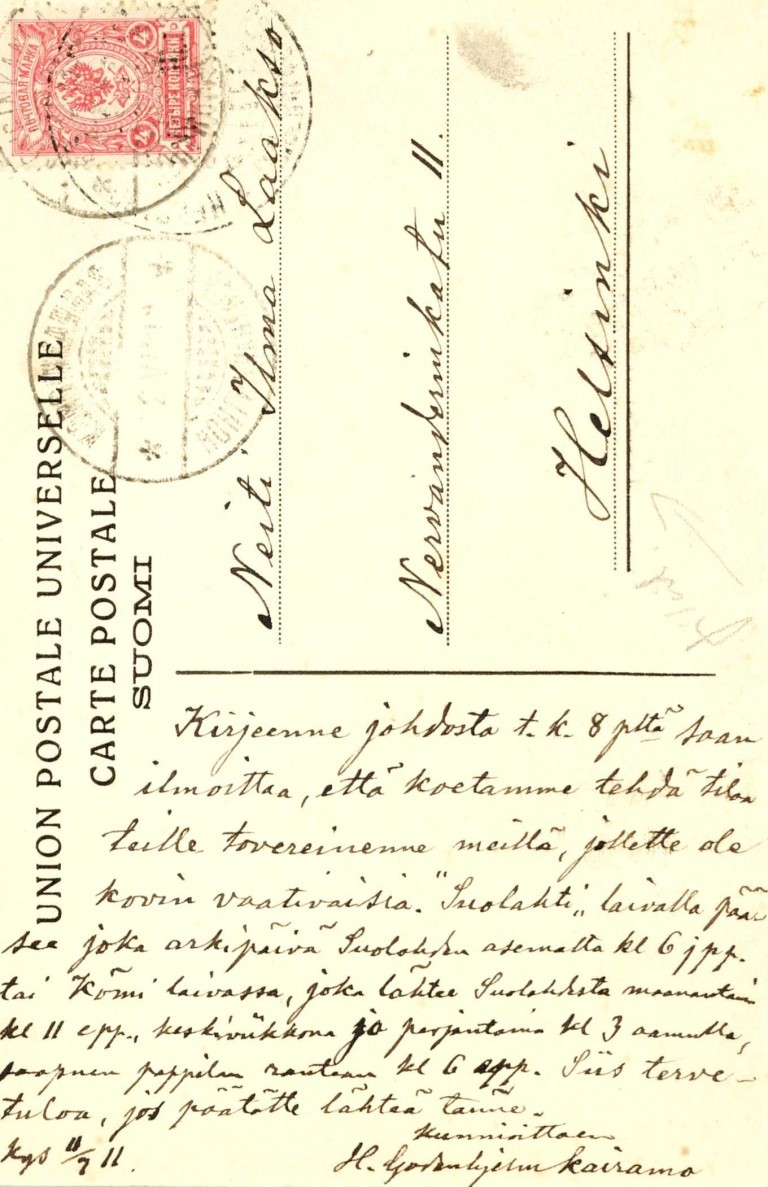 UNION POSTALE UNIVERSELLE
CARTE POSTALE
SUOMI
ПОЧТОВАЯ МАРКА
ЧЕТЫРЕ КОПѢЙКИ
4
4
Neiti Ilma Laakso
Nervanderinkatu 11.
Helsinki
Kirjeenne johdosta t.k. 8 pltä saan
ilmoittaa, että koetamme tehdä tilaa
teille tovereinenne meillä, jollette ole
kovin vaativaisia. "Suolahti" laivalla pää-
see joka arkipäivä Suolahden asemalta kl 6 jpp.
tai Kömi laivassa, joka lähtee Suolahdesta maanantain
kl 11 epp., keskiviikkona ja perjantaina kl 3 aamulla,
saapuen pappilan rantaan kl 6 epp. Siis terve-
tuloa, jos päätätte lähteä tänne.
kunnioittaen
Kgs 11/7 11. H. Godenhjelm Kairamo